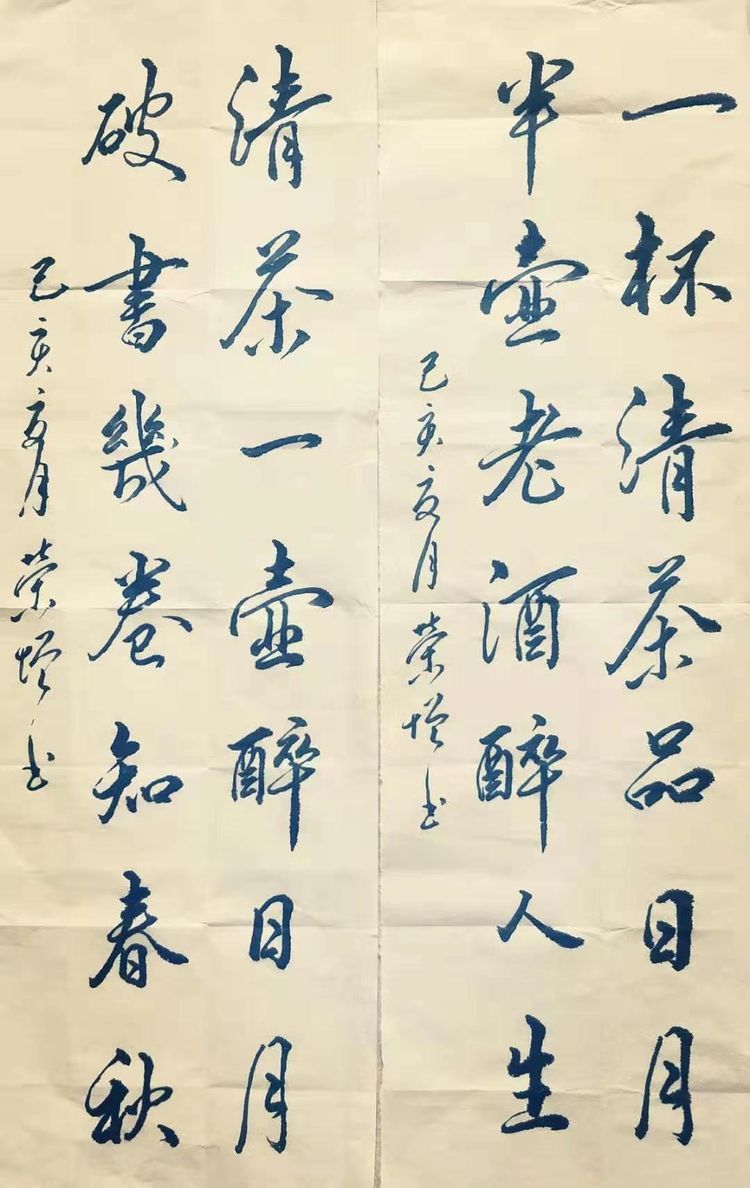 一杯清茶品日月
半壶老酒醉人生
己亥夏月荣增书
清茶一壶醉日月
破书几卷知春秋
己亥夏月荣增书